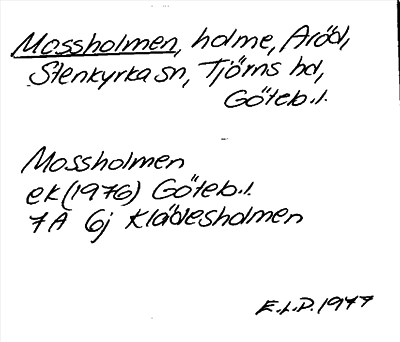 Mossholmen, holme, Aröd,
Stenkyrka sn, Tjörns hd,
Göteb.l.
Mossholmen
ek (1976) Göteb.l.
7A 6j Klädesholmen
E.L.P. 1977